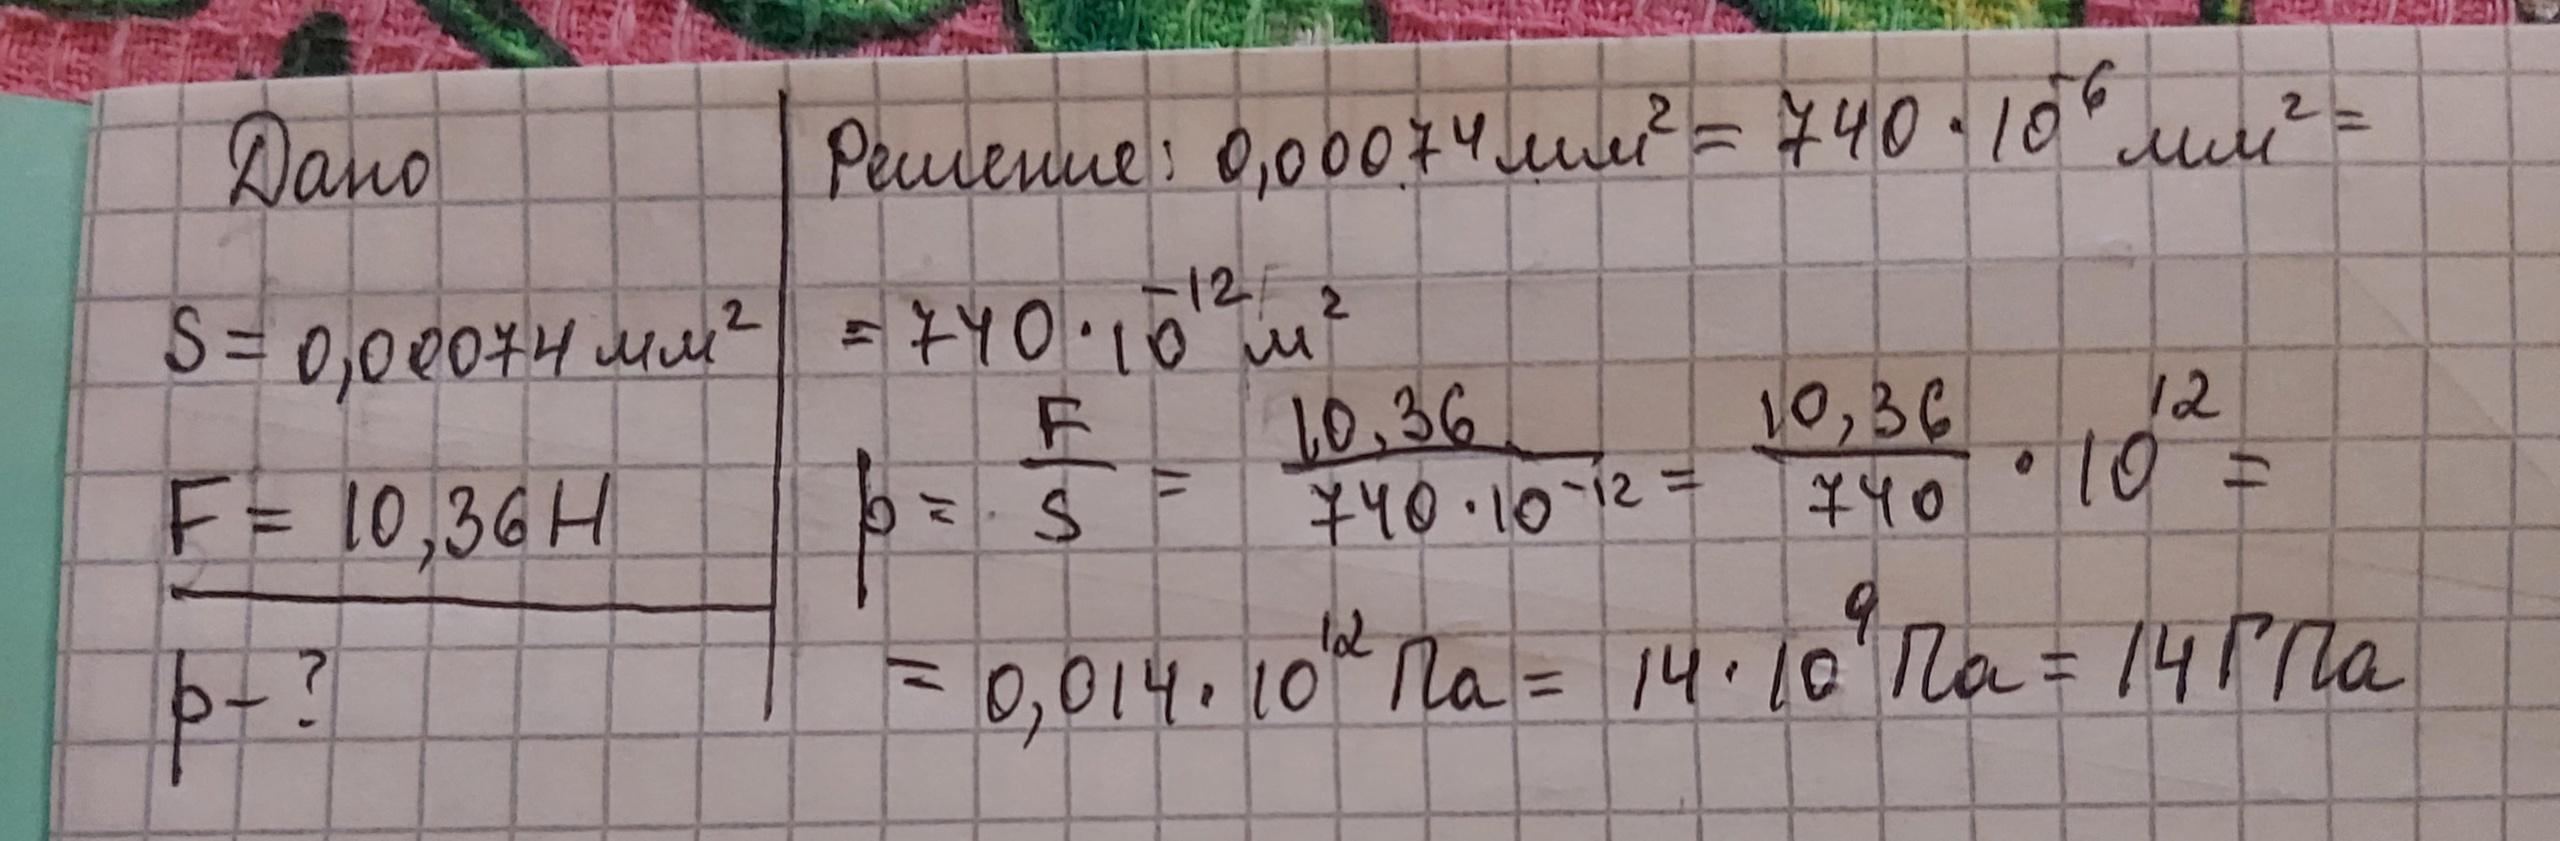 Дано
S = 0,00074 мм²
F = 10,36 Н
p - ?
Решение: 0,00074 мм² = 740 · 10⁻⁶ мм² =
= 740 · 10⁻¹² м²
p = F/S = 10,36/(740 · 10⁻¹²) = 10,36/740 · 10¹² =
= 0,014 · 10¹² Па = 14 · 10⁹ Па = 14 ГПа